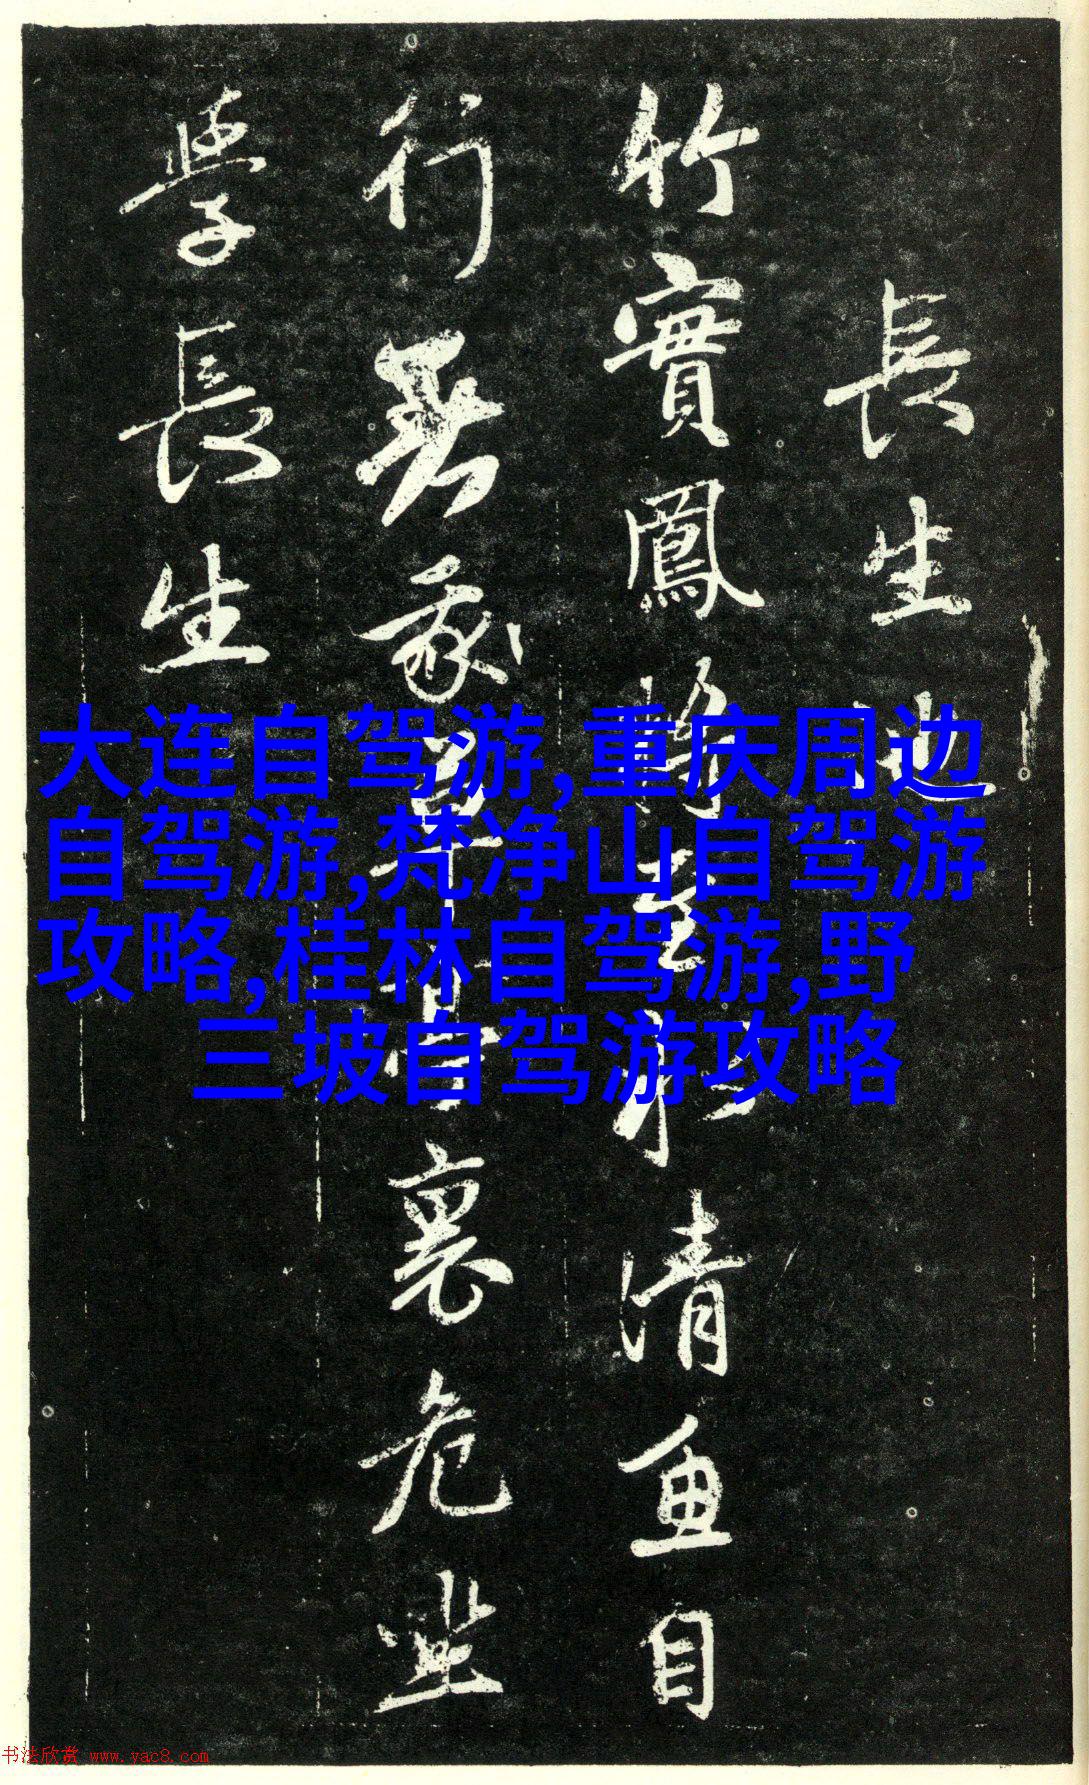 長生池
竹實鳳將至水清魚自
行裏危坐
學長生
大连自驾游,重庆周边
自驾游,梵净山自驾游
攻略,桂林自驾游,野
三坡自驾游攻略
书法欣赏 www.yac8.com